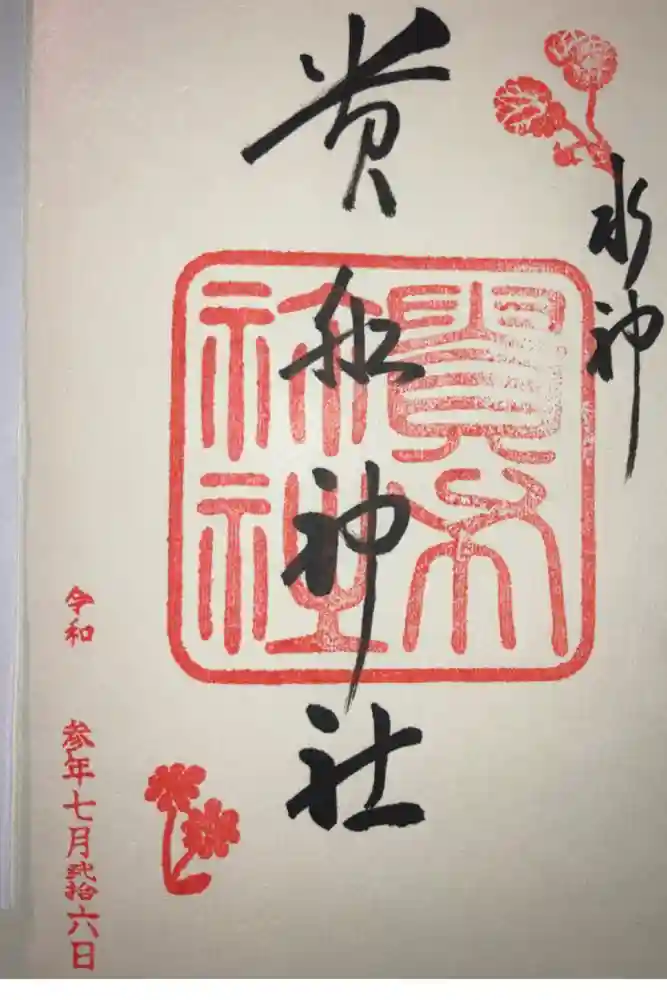 水神
貴船神社
令和 参年七月弐拾六日